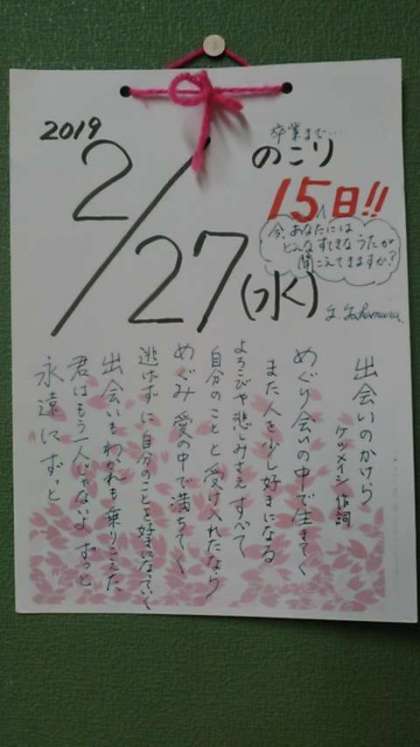 2019
2/27(水)
卒業まで…
のこり
15日!!
今、あなたには
どんなすてきなうたが
聞こえてきますか?
出会いのかけら
ケツメイシ 作詞
めぐり会いの中で生きてく
また人を少し好きになる
よろこびや悲しみさえすべて
自分のことと受け入れたなら
めぐみ愛の中で満ちてく
逃げずに自分のことを好きになっていく
出会いもわかれも乗りこえた
君はもう一人じゃないよ ずっと
永遠に ずっと